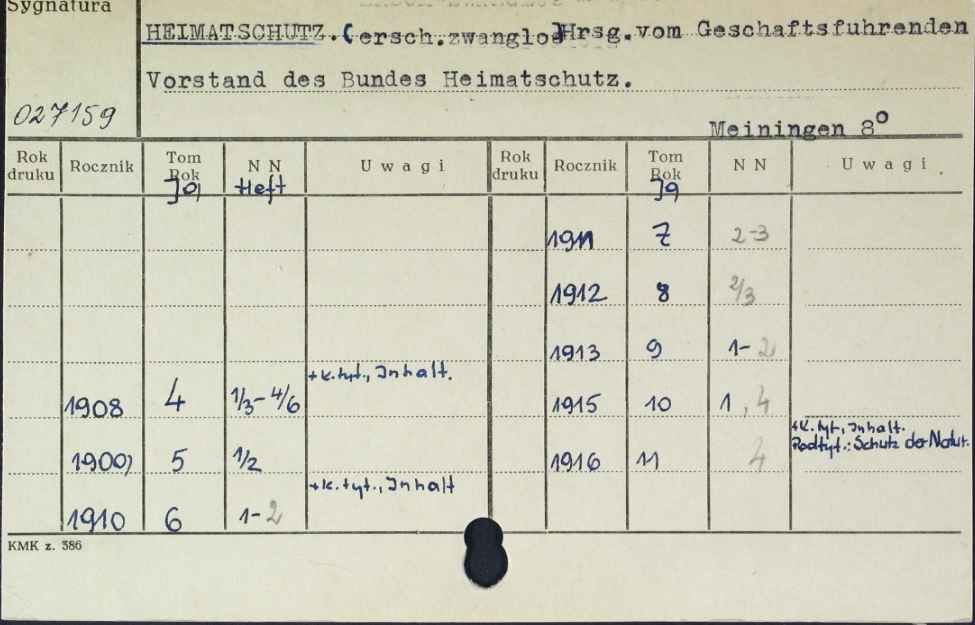 Sygnatura
HEIMATSCHUTZ.(ersch.zwanglos)Hrsg.vom Geschaftsfuhrenden
Vorstand des Bundes Heimatschutz.
027159
Meiningen 8°
Rok druku Rocznik Tom Rok N N U w a g i Rok druku Rocznik Tom Rok N N U w a g i
Jg Heft Jg
1911 7 2-3
1912 8 2/3
1913 9 1-2
+k.tyt., Inhalt.
1908 4 1/3-4/6 1915 10 1, 4
+k. tyt, Inhalt.
Podtyt.: Schutz der Natur.
1909 5 1/2 1916 11 4
+k.tyt., Inhalt
1910 6 1-2
KMK z. 386